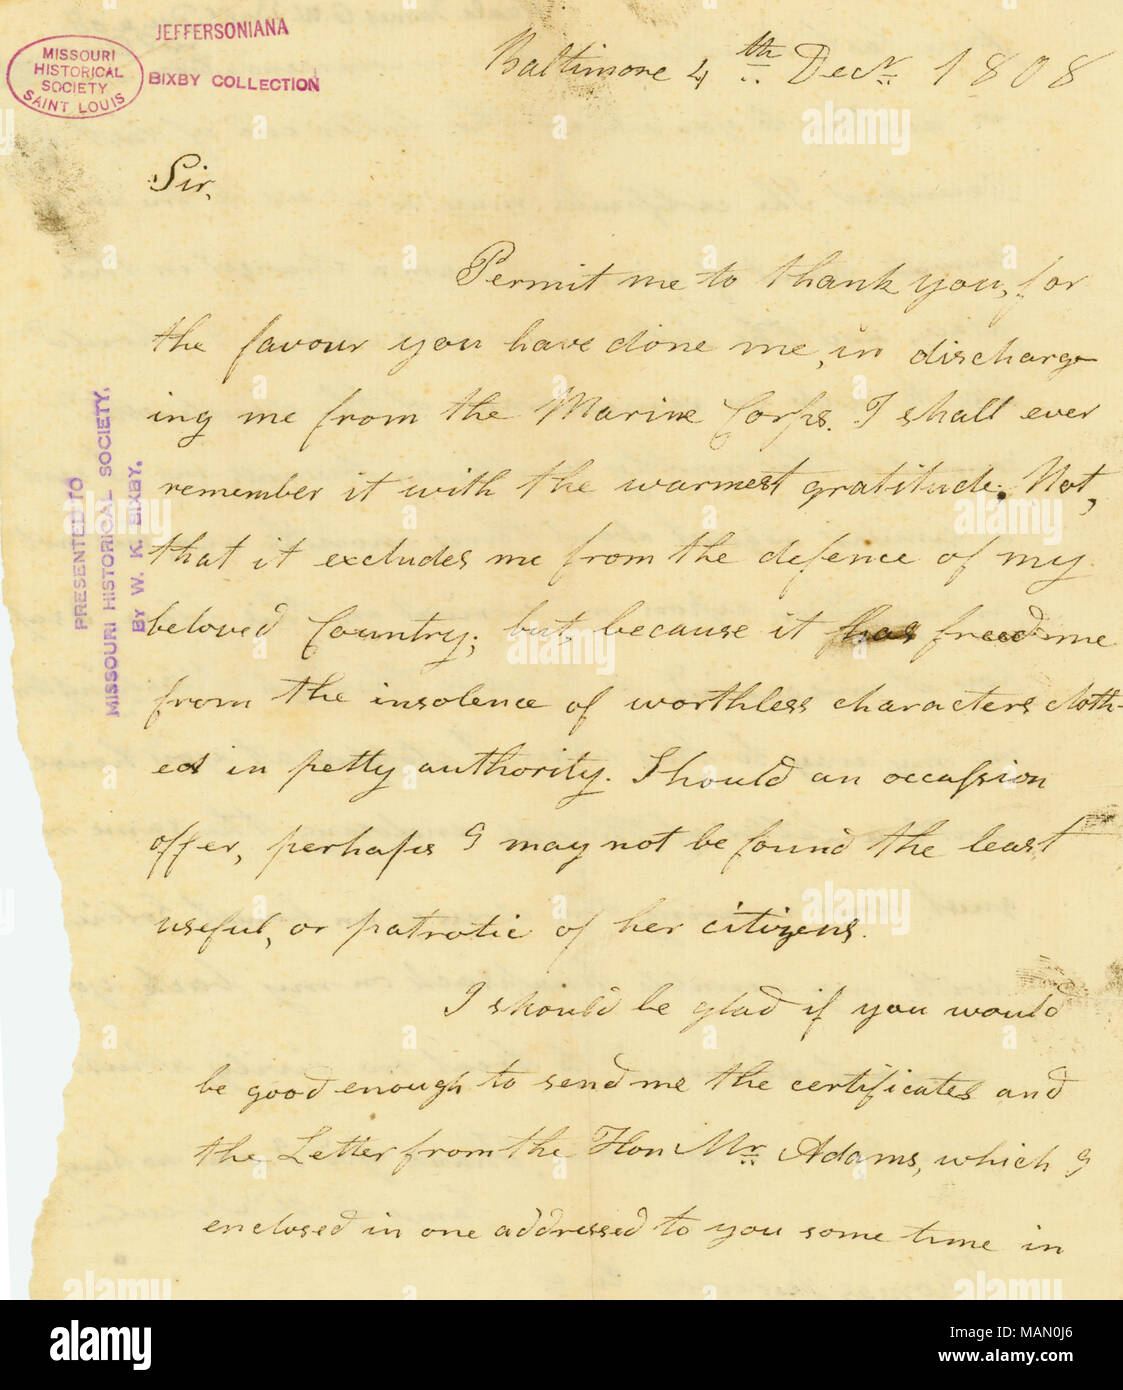 JEFFERSONIANA
MISSOURI
HISTORICAL
SOCIETY
SAINT LOUIS
BIXBY COLLECTION
Baltimore 4th Decr. 1808
Sir,
Permit me to thank you, for
the favour you have done me, in discharg
ing me from the Marine Corps. I shall ever
remember it with the warmest gratitude. Not,
that it excludes me from the defence of my
beloved Country; but, because it has freed me
from the insolence of worthless characters cloth-
ed in petty authority. Should an occassion
offer, perhaps I may not be found the least
useful, or patrotic of her citizens.
I should be glad if you would
be good enough to send me the certificates and
the Letter from the Hon Mr. Adams, which I
enclosed in one addressed to you some time in
PRESENTED TO
MISSOURI HISTORICAL SOCIETY.
BY W. K. BIXBY.
alamy
a
alamy
a
alamy
a
alamy
a
alamy
alamy
Image ID: MAN0J6
www.alamy.com